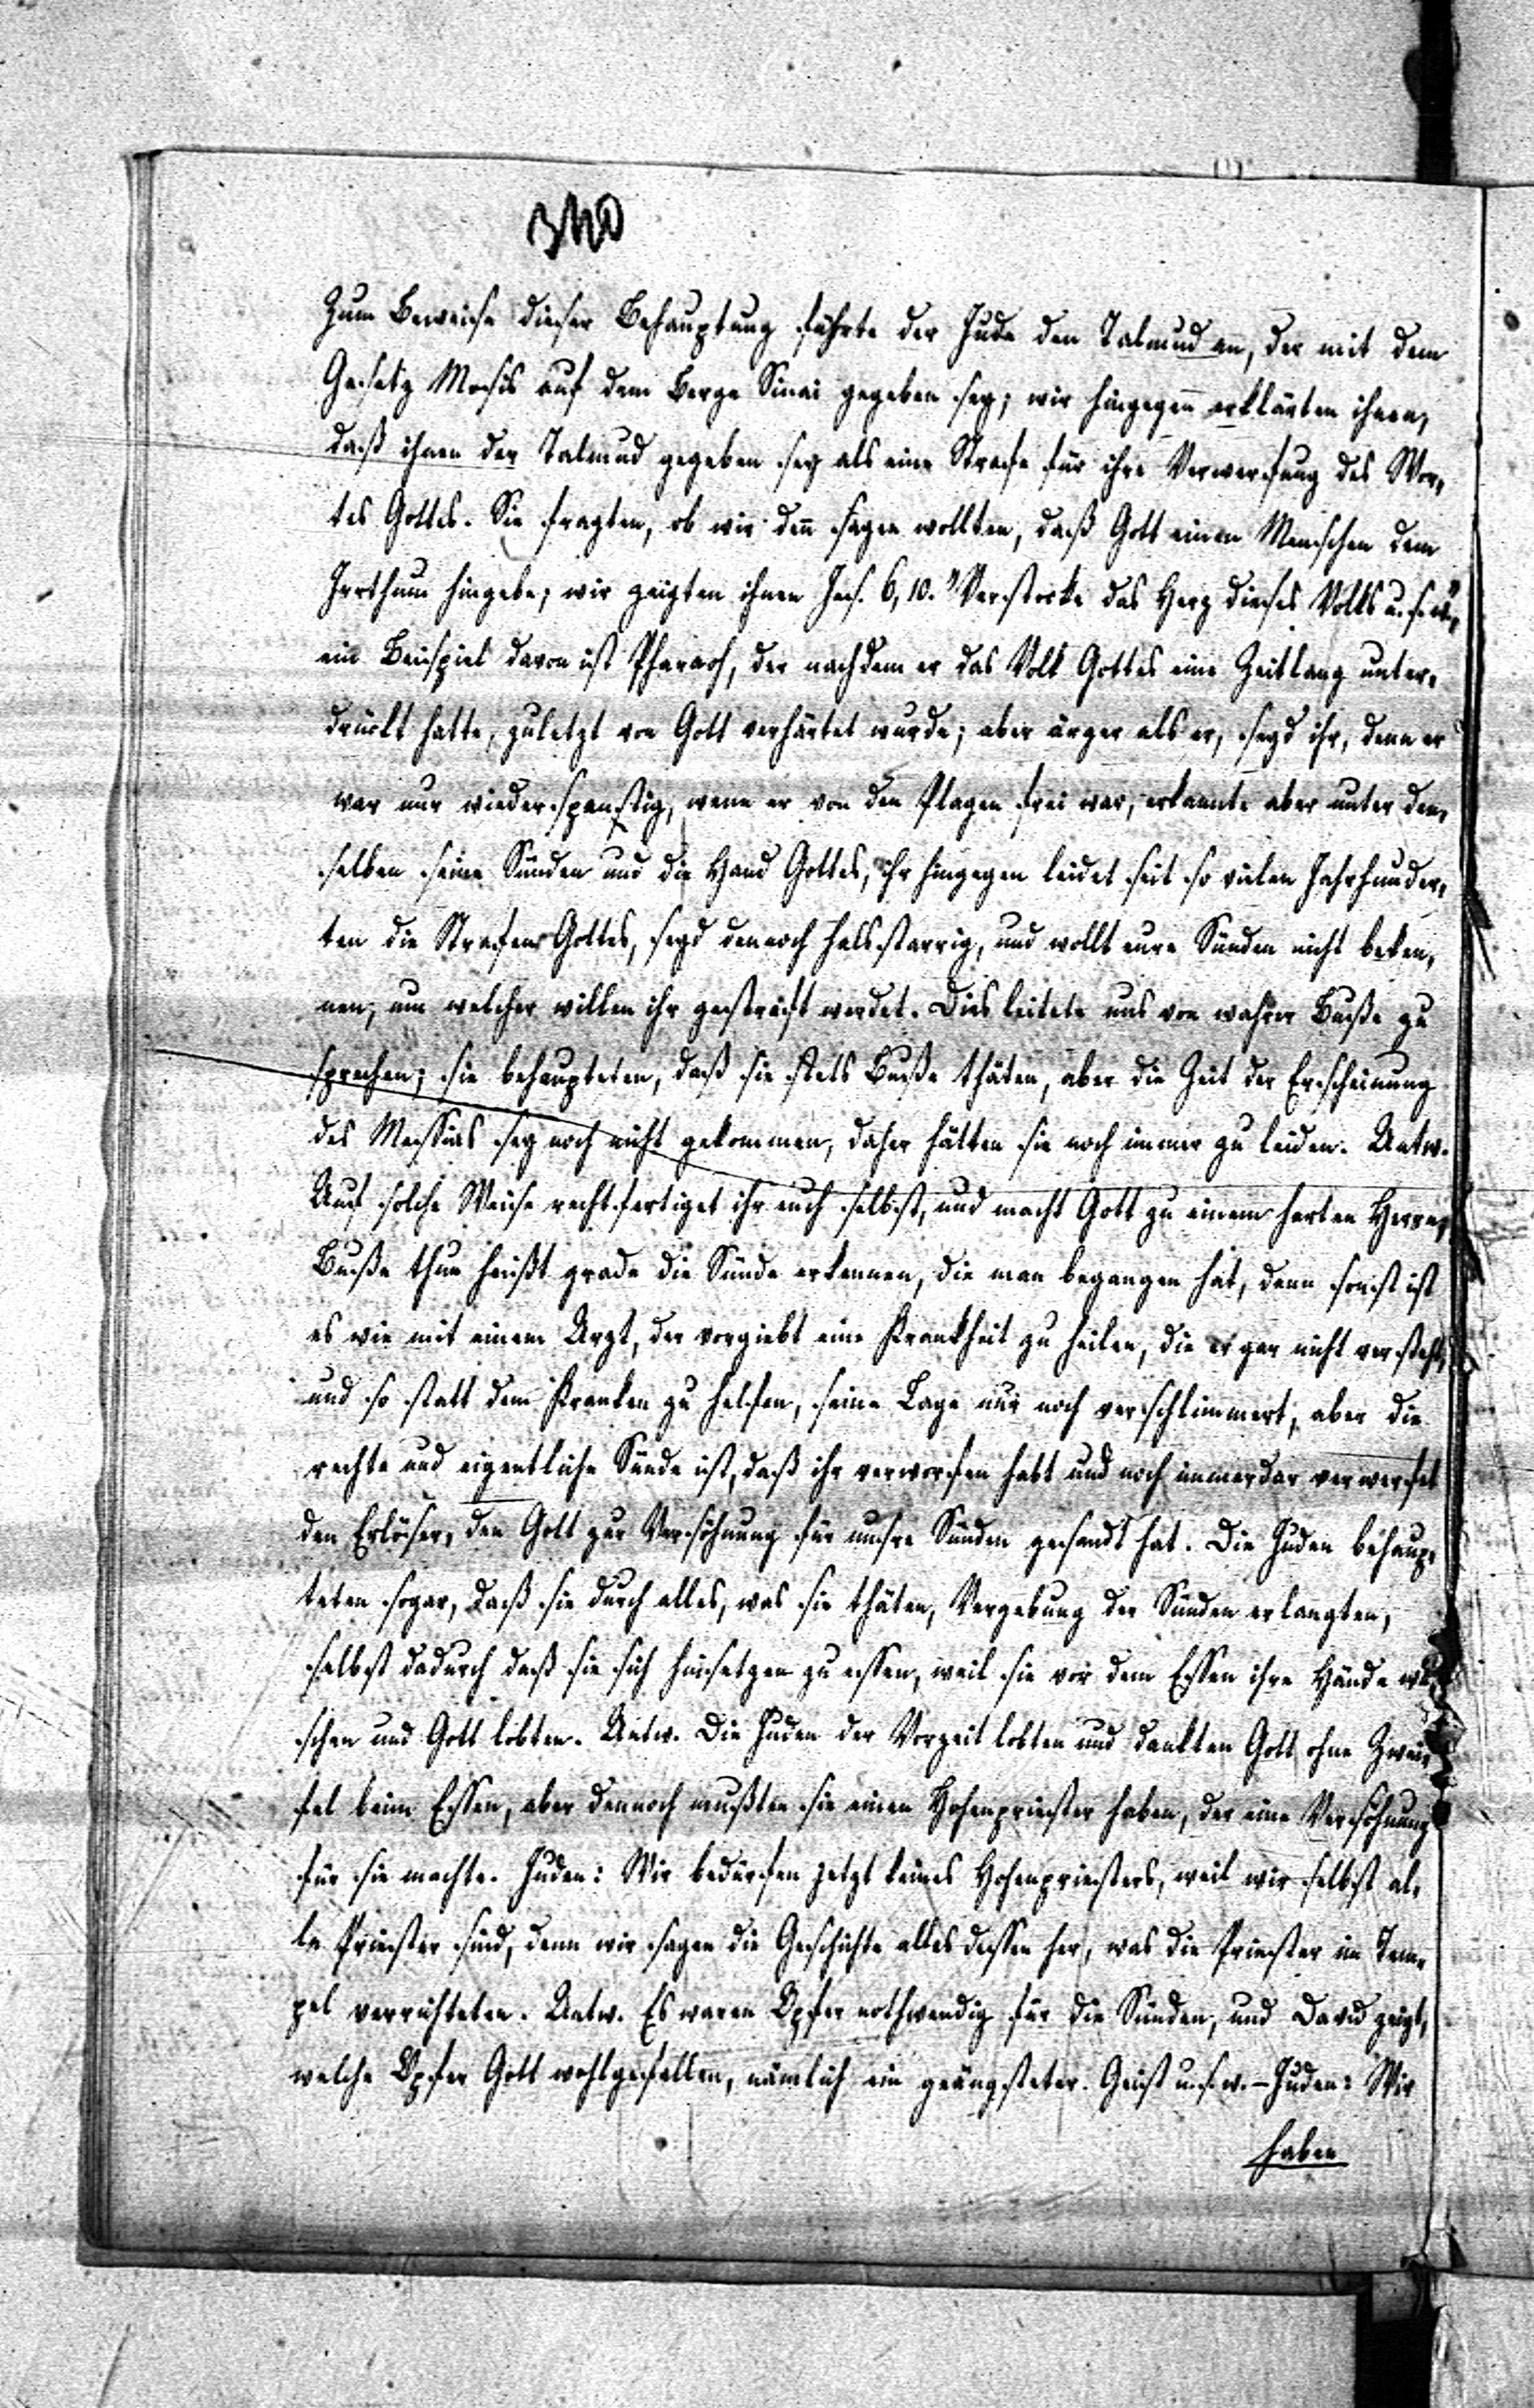 340
Zum Beweise dieser Behauptung führte der Jude den Talmud an, der mit dem
Gesetz Mosis auf dem Berge Sinai gegeben sey; wir hingegen erklärten ihnen,
daß ihnen der Talmud gegeben sey als eine Strafe für ihre Verwerfung des Wor,
tes Gottes. Sie fragten, ob wir deñ sagen wollten, daß Gott einen Menschen dem
Irrthum hingebe; wir zeigten ihnen Jes. 6, 10. "Verstocke das Herz dieses Volks u. s. w.,"
ein Beispiel davon ist Pharaoh, der nachdem er das Volk Gottes eine Zeitlang unter,
drückt hatte, zuletzt von Gott verhärtet wurde; aber ärger als er, seyd ihr, denn er
war nur wiederspenstig, wenn er von den Plagen frei war, erkannte aber unter den,
selben seine Sünden und die Hand Gottes, ihr hingegen leidet seit so vielen Jahrhunder,
ten die Strafen Gottes, seyd dennoch halsstarrig, und wollt eure Sünden nicht beken,
nen, um welcher willen ihr gestraft werdet. Dies leitete uns von wahrer Buße zu
sprechen; sie behaupteten, daß sie stets Buße thäten, aber die Zeit der Erscheinung
des Messias sey noch nicht gekommen, daher hätten sie noch immer zu leiden. Antw.
Auf solche Weise rechtfertiget ihr euch selbst, und macht Gott zu einem harten Herrn,
Buße thun heißt grade die Sünde erkennen, die man begangen hat, denn sonst ist
es wie mit einem Arzt, der vorgiebt eine Krankheit zu heilen, die er gar nicht versteht,
und so statt dem Kranken zu helfen, seine Lage nur noch verschlimmert, aber die
rechte und eigentliche Sünde ist, daß ihr verworfen habt und noch immerdar verwerfet
den Erlöser, den Gott zur Versöhnung für unsre Sünden gesandt hat. Die Juden behaup,
teten sogar, daß sie durch alles, was sie thäten, Vergebung der Sünden erlangten,
selbst dadurch daß sie sich hinsetzen zu essen, weil sie vor dem Essen ihre Hände wü,
schen und Gott lobten. Antw. Die Juden der Vorzeit lobten und dankten Gott ohne Zwei,
fel beim Essen, aber dennoch mußten sie einen Hohenpriester haben, der eine Versöhnung
für sie machte. Juden: Wir bedürfen jetzt keines Hohenpriesters, weil wir selbst al,
le Priester sind, denn wir sagen die Geschichte alles dessen her, was die Priester im Tem,
pel verrichteten. Antw. Es waren Opfer nothwendig für die Sünden, und David zeigt,
welche Opfer Gott wohlgefallen, nämlich ein geängsteter Geist u. s. w. - Juden: Wir
haben